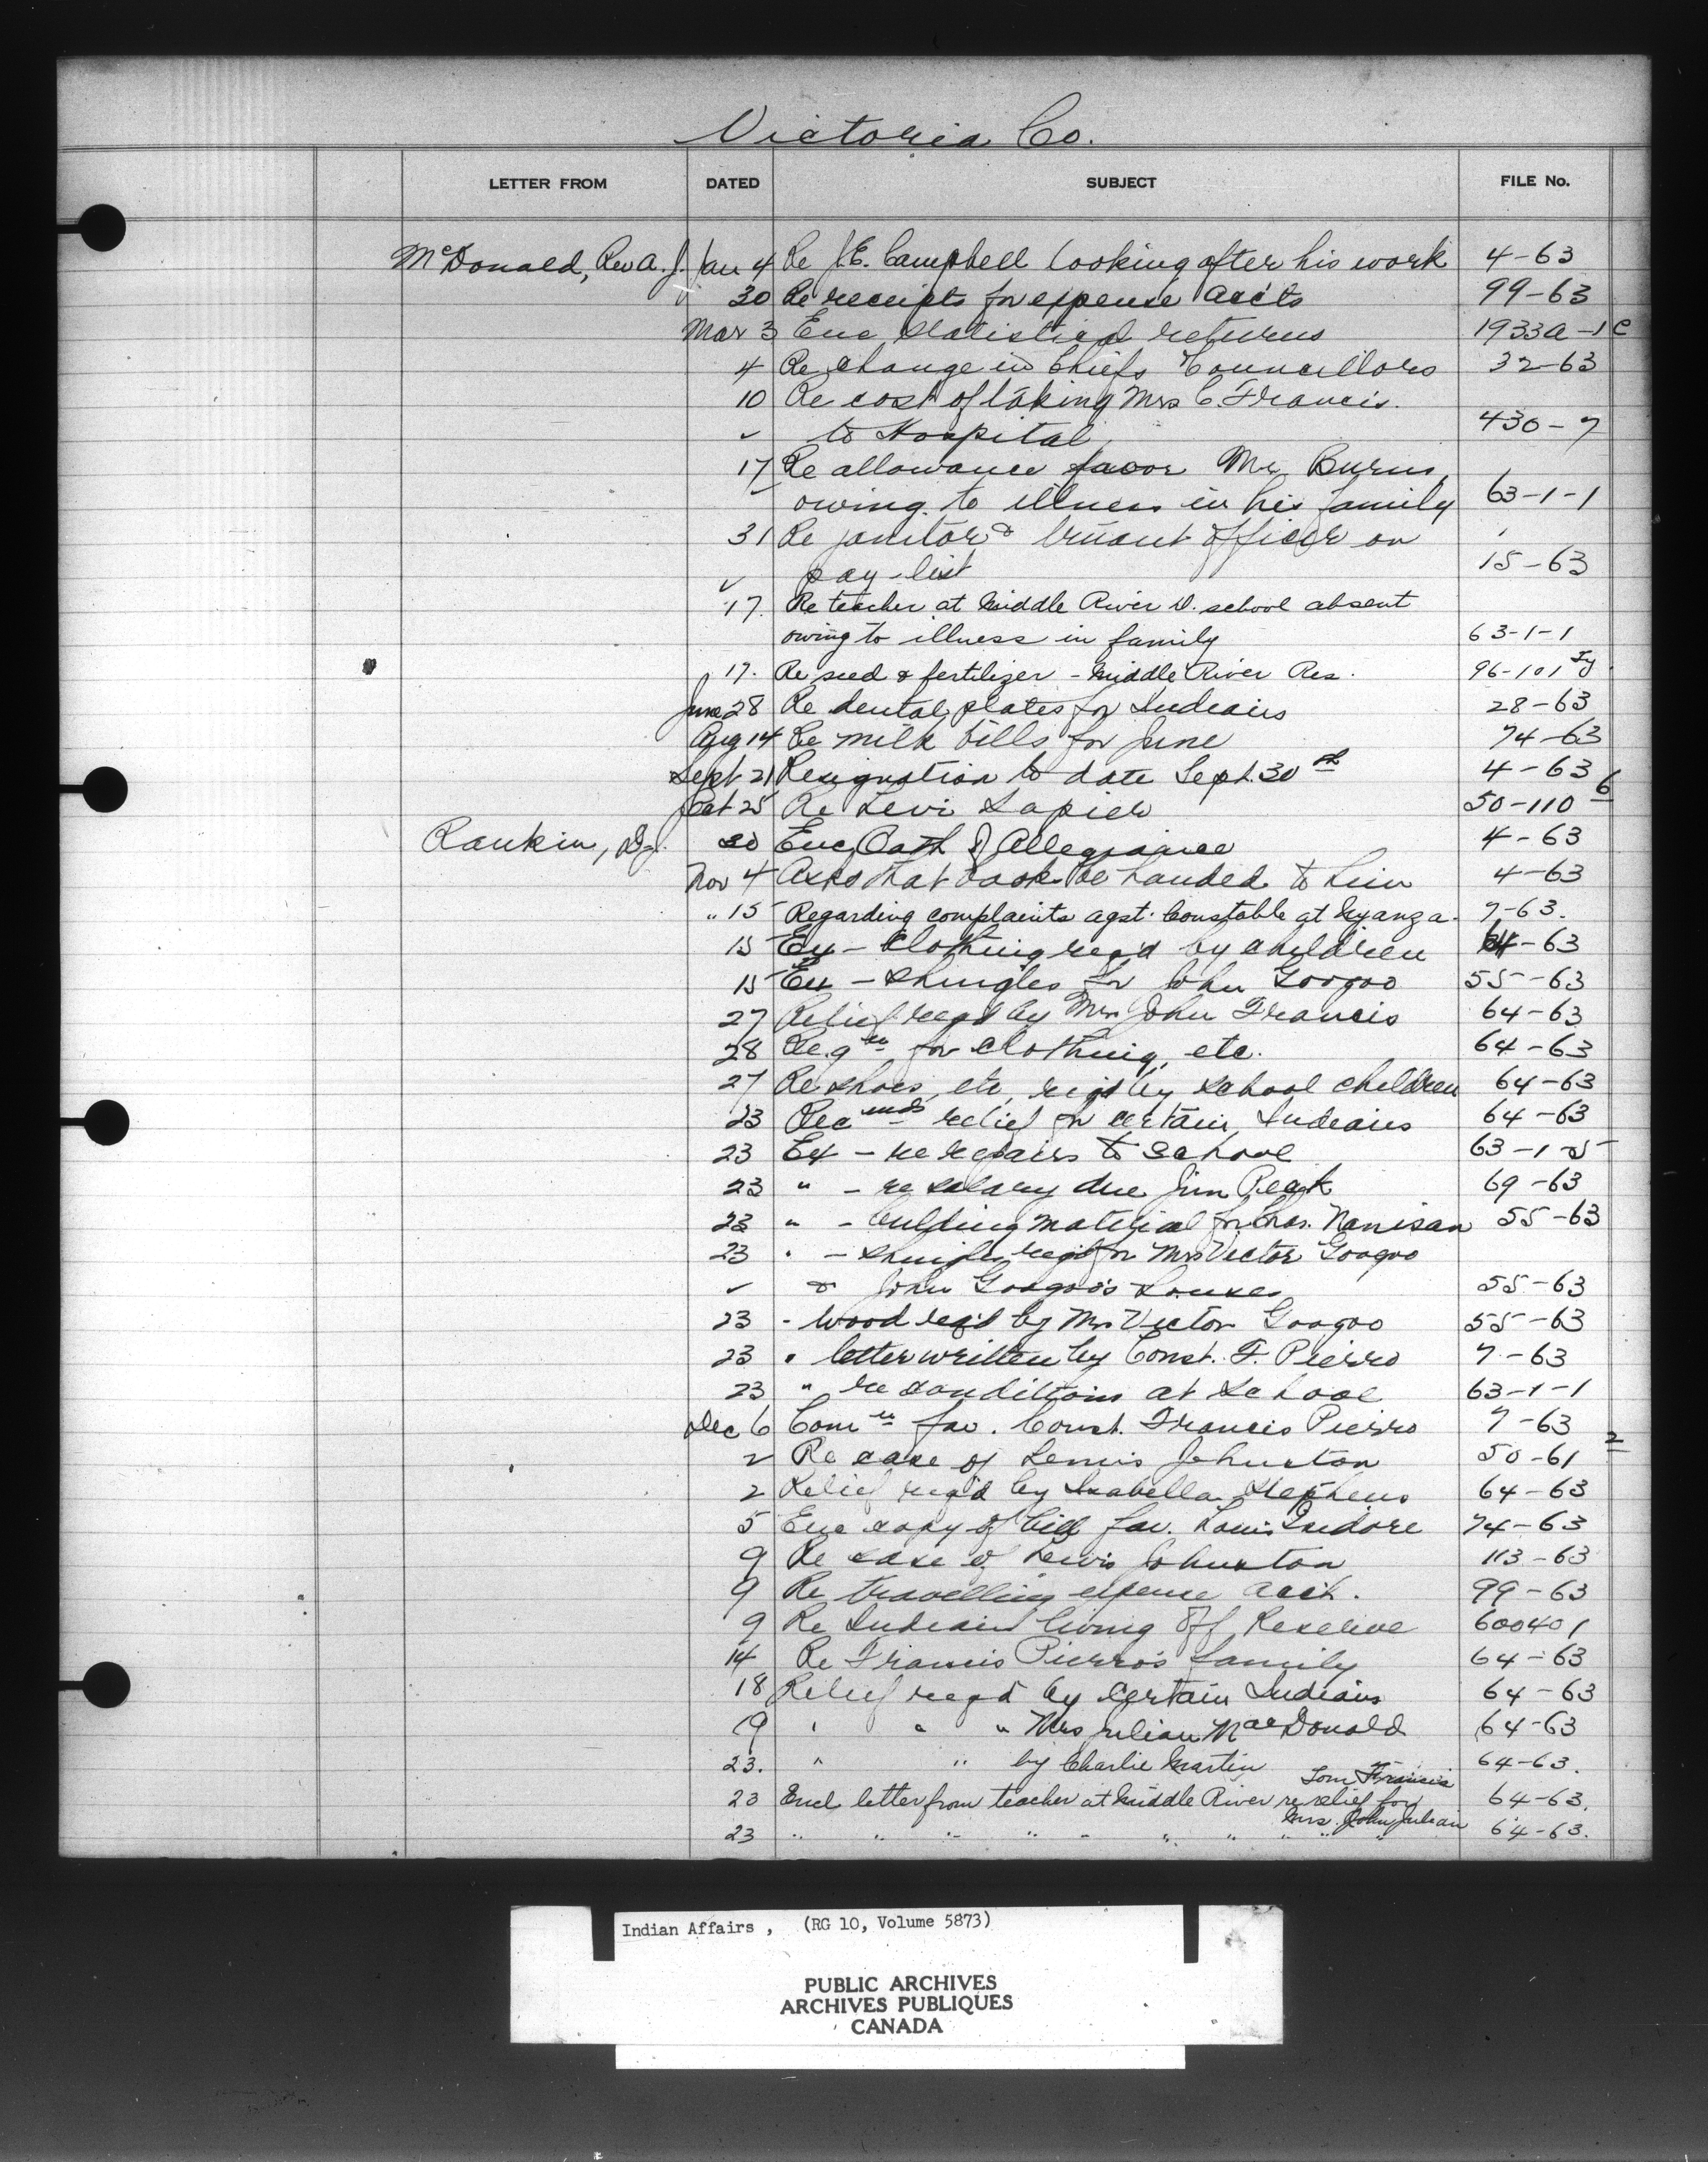 Victoria Co.
LETTER FROM DATED SUBJECT FILE No.
McDonald, Rev A. J. Jan 4 Re J.E. Campbell looking after his work 4-63
30 Re receipts for expense acc'ts 99-63
Mar 3 Enc statistical returns 1933A-1C
4 Re change in Chiefs Councillors 32-63
10 Re cost of taking Mrs C. Francis.
✓ to Hospital 430-7
17 Re allowance favor Mr Burns,
owing to illness in his family 63-1-1
31 Re janitor & truant officer on
✓ pay-list 15-63
17. Re teacher at Middle River D. school absent
owing to illness in family 63-1-1
17. Re seed & fertilizer - Middle River Res. 96-101
June 28 Re dental plates for Indians 28-63
Aug 14 Re milk bills for June 74-63
Sept 21 Resignation to date Sept. 30th 4-63
Oct 25 Re Levi Lapier 50-110 6
Rankin, D.J. 30 Enc Oath of Allegiance 4-63
Nov 4 Asks that books be handed to him 4-63
" 15 Regarding complaints agst. Constable at Nyanza. 7-63.
15 Ex - Clothing req'd by children 64-63
15 Ex - Shingles for John Googoo 55-63
27 Relief reqd by Mrs John Francis 64-63
28 Reqn for clothing, etc. 64-63
27 Re shoes, etc, reqd by school children 64-63
23 Recmds relief for certain Indians 64-63
23 Ex - re repairs to school 63-1-5
23 " - re salary due Jim Peck 69-63
23 " - building material for Chas. Nanisan 55-63
23 " - Shingles reqd for Mrs Victor Googoo
✓ & John Googoo's houses 55-63
23 - wood req'd by Mrs Victor Googoo 55-63
23 " letter written by Const. F. Pierro 7-63
23 " re conditions at School 63-1-1
Dec 6 Comn fav. Const. Francis Pierro 7-63
2 Re case of Lewis Johnston 50-61 2
2 Relief req'd by Isabella Stephens 64-63
5 Enc copy of bill fav. Louis Isidore 74-63
9 Re case of Lewis Johnston 113-63
9 Re travelling expense acct. 99-63
9 Re Indians living off Reserve 600401
14 Re Francis Pierro's family 64-63
18 Relief reqd by certain Indians 64-63
19 " " " Mrs Julian MacDonald 64-63
23. " " by Charlie Martin 64-63.
23 Encl letter from teacher at Middle River re relief for Tom Francis 64-63.
23 " " " " " " " " " " Mrs. John Julian 64-63.
Indian Affairs , (RG 10, Volume 5873)
PUBLIC ARCHIVES
ARCHIVES PUBLIQUES
CANADA